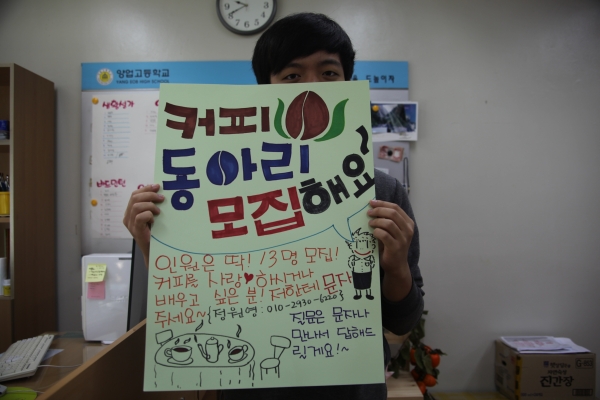 양업고등학교
커피
동아리
모집해요~
인원은 딱! 13명 모집!
커피를 사랑♥하시거나
배우고 싶은 분! 저한테 문자
주세요~ (정원영: 010-2930-6220)
질문은 문자나
만나서 답해드
릴게요!~
진간장